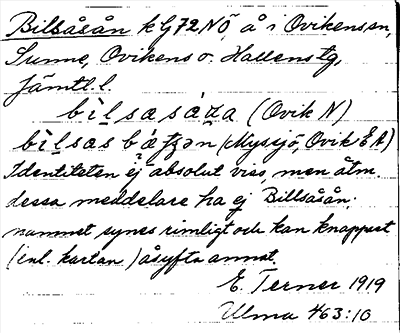 Billsåsån k G 72 NÖ, å i Ovikens sn,
Sunne, Ovikens o. Hallens tg,
Jämtl. l.
bìlsasána (Ovik N)
bìlsas bátʒən (Myssjö, Ovik E A)
Identiteten ej absolut viss, men åtm.
dessa meddelare ha ej Billsåsån;
namnet synes rimligt och kan knappast
(enl. kartan) åsyfta annat.
E. Terner 1919
Ulma 463:10